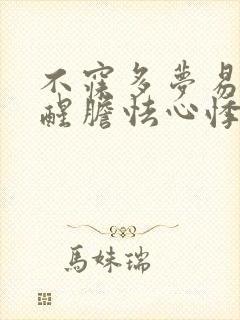 不寐多夢易
醒膽怯心悸
馬妹瑞